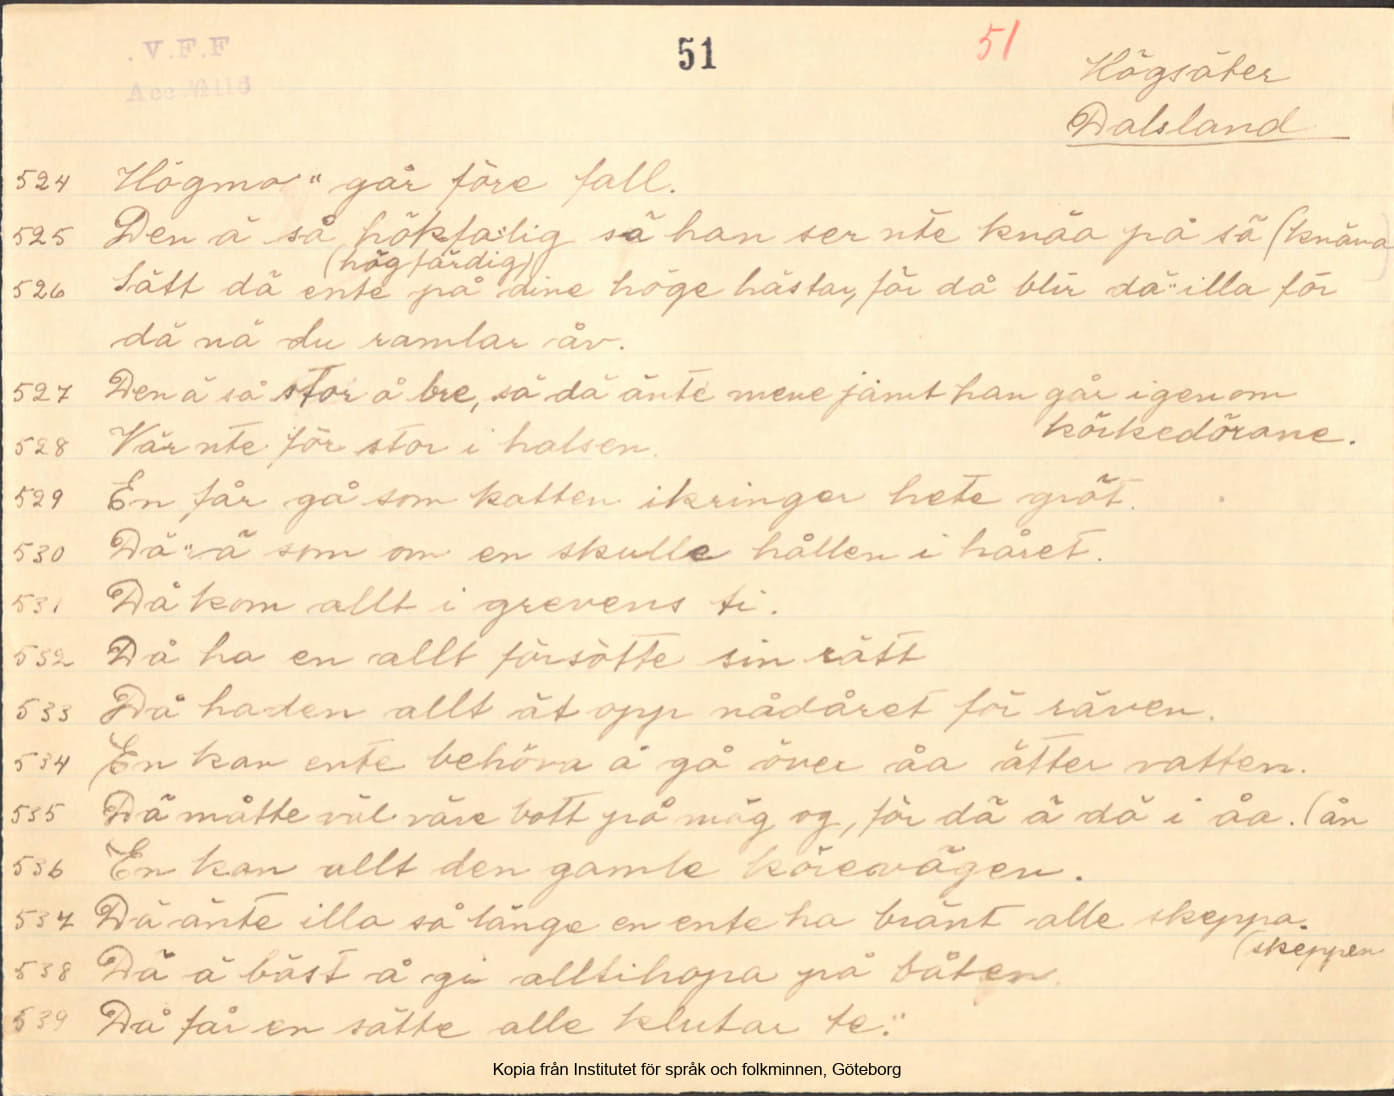 V.F.F
51
51
Högsäter
Acc.
Dalsland
524 Högmo" går före fall.
525 Den ä så hökfa:lig så han ser nte knäa på sä (knäna)
(högfärdig)
526 Sätt dä ente på dine höge hästar, för då blir dä" illa för
dä nä du ramlar åv.
527 Den ä så stor å bre, så dä änte mene jämt han går igenom
körkedörane.
528 Vär nte för stor i halsen.
529 En får gå som katten ikringer hete gröt.
530 Dä" ä som om en skulle hållen i håret.
531 Då kom allt i grevens ti.
532 Då ha en allt försötte sin rätt
533 Då haden allt ät opp nådåret för räven.
534 En kan ente behöva å gå över åa ätter vatten.
535 Dä måtte väl väre bott på mäg og, för dä ä dä i åa. (ån
536 En kan allt den gamle körevägen.
537 Dä änte illa så länge en ente ha bränt alle skeppa.
(skeppen
538 Dä ä bäst å gi alltihopa på båten.
539 Då får en sätte alle klutar te."
Kopia från Institutet för språk och folkminnen, Göteborg